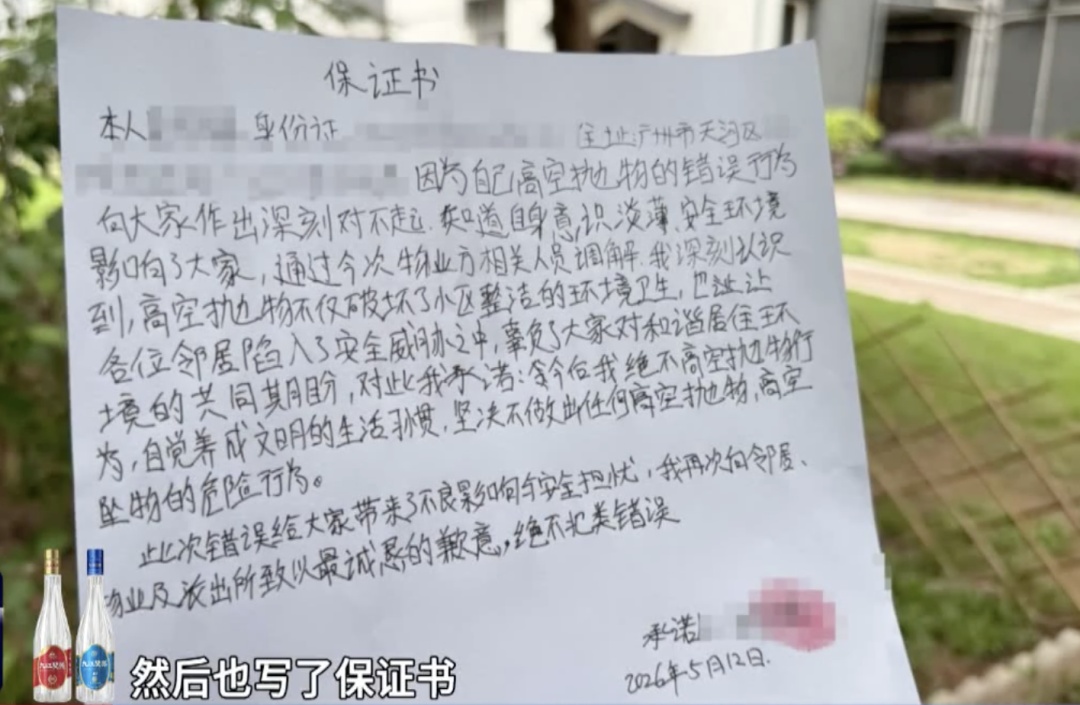 保证书
本人 身份证 住址:广州市天河区
因为自己高空抛物的错误行为
向大家作出深刻对不起,知道自身意识淡薄、安全环境
影响了大家,通过今次物业方相关人员调解,我深刻认识
到,高空抛物不仅破坏了小区整洁的环境卫生,也让
各位邻居陷入了安全威胁之中,辜负了大家对和谐居住环
境的共同期盼,对此我承诺:今后我绝不高空抛物行
为,自觉养成文明的生活习惯,坚决不做出任何高空抛物,高空
坠物的危险行为。
此次错误给大家带来了不良影响与安全担忧,我再次向邻居、
物业及派出所致以最诚恳的歉意,绝不犯类错误
承诺
2026年5月12日.
然后也写了保证书